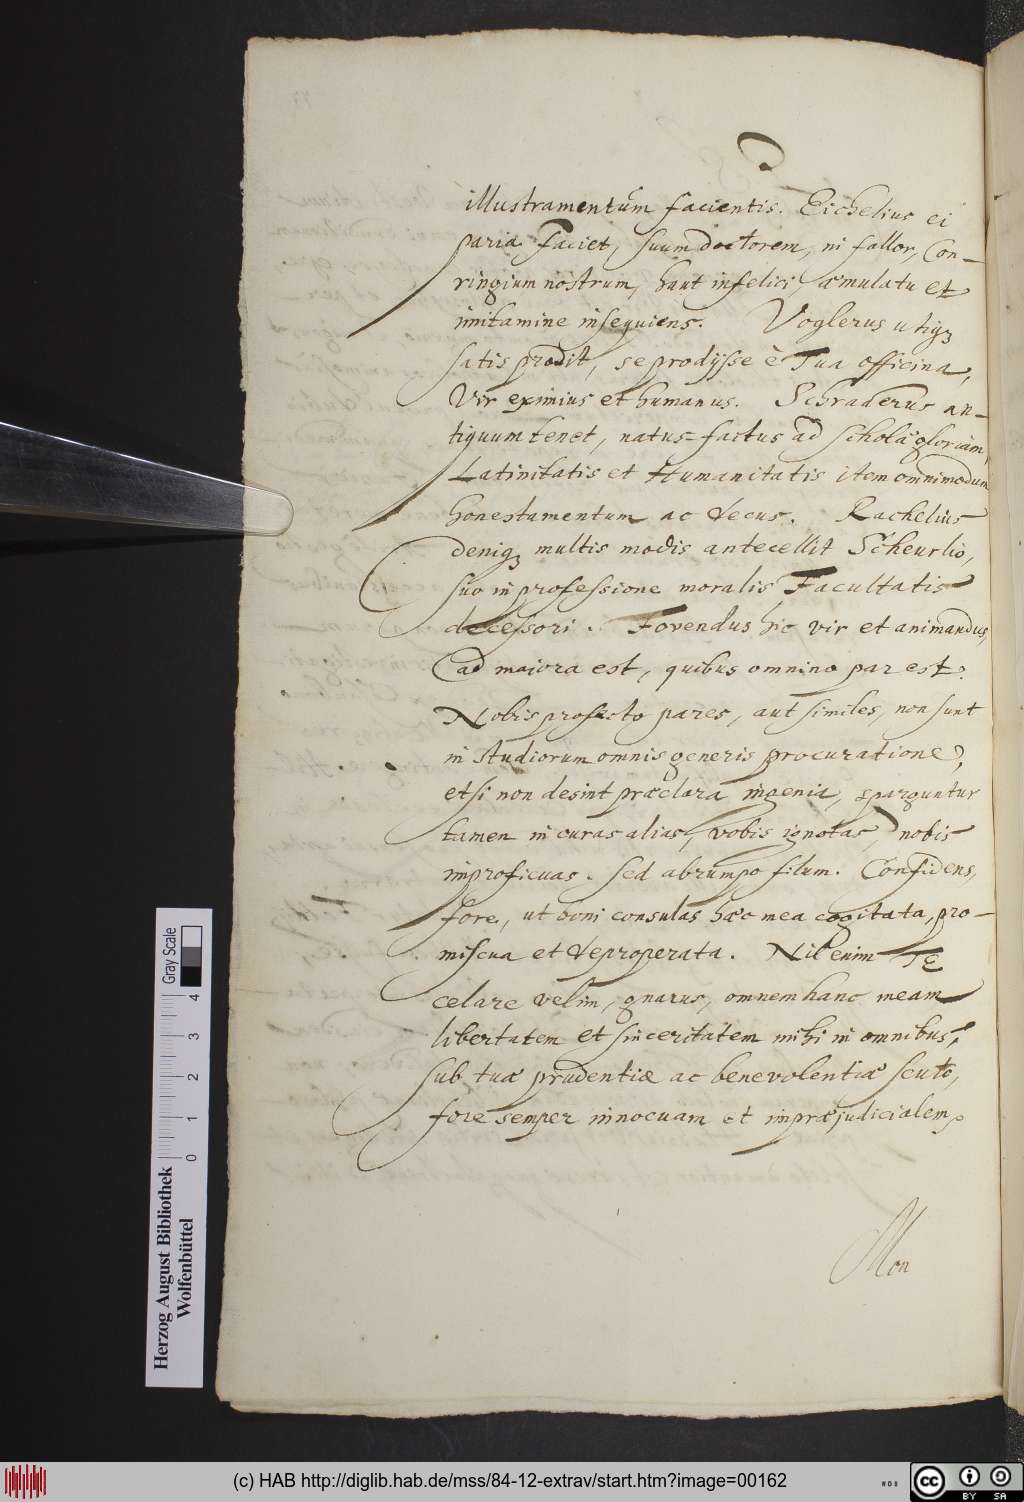 illustramentum facientis. Eichelius ei
paria faciet, suum doctorem, ni fallor, Con-
ringium nostrum, haut infelici, æmulatu et
imitamine insequens. Voglerus utiqꝫ
satis prodit, se prodijsse è Tua officina,
Vir eximius et humanus. Schraderus an-
tiquum tenet, natus-factus ad scholæ gloriam,
Latinitatis et Humanitatis item omnimodum
honestamentum ac decus. Rachelius
deniqꝫ multis modis antecellit Scheurlio,
suo in professione moralis Facultatis
decessori. Fovendus hic vir et animandus,
ad maiora est, quibus omnino par est.
Nobis profecto pares, aut similes, non sunt
in studiorum omnis generis procuratione,
etsi non desint præclara ingenia, sparguntur
tamen in curas alias, vobis ignotas, nobis
improficuas. Sed abrumpo filum. Confidens,
fore, ut boni consulas hæc mea cogitata, pro-
miscua et deproperata. Nil enim TE
celare velim, gnarus, omnem hanc meam
libertatem et sinceritatem mihi in omnibus,
sub tuæ prudentiæ ac benevolentiæ scuto,
fore semper innocuam et impræjudicialem.
Non
Herzog August Bibliothek
Wolfenbüttel
Gray Scale
0 1 2 3 4
(c) HAB http://diglib.hab.de/mss/84-12-extrav/start.htm?image=00162
cc BY SA